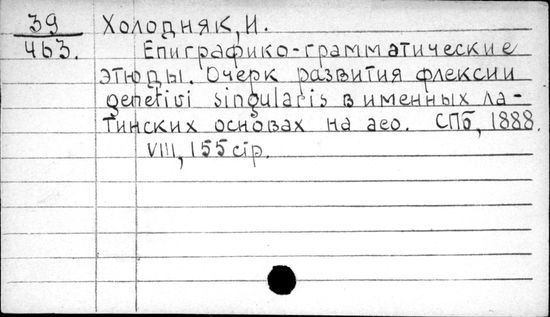 39 Холодняк, И.
463. Епиграфико-грамматические
этюды. Очерк развития флексии
genetivi singularis в именных ла-
тинских основах на aeo. СПб, 1888.
VIII, 155 стр.